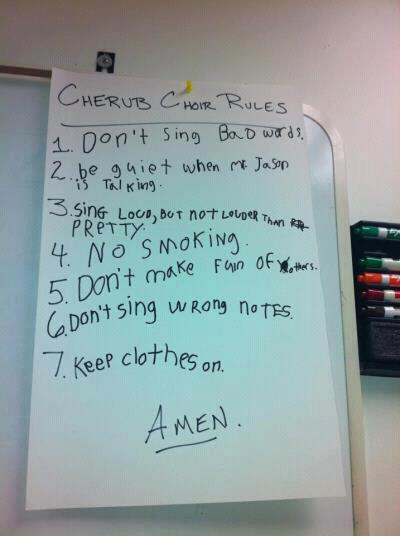 CHERUB CHOIR RULES
1. Don't sing Bad words.
2. be quiet when mr. Jason
is Talking.
3. SING LOUD, BUT NOT LOUDER Than
PRETTY.
4. No smoking.
5. Don't make Fun OF others.
6. Don't sing wrong noTES.
7. Keep clothes on.
AMEN.